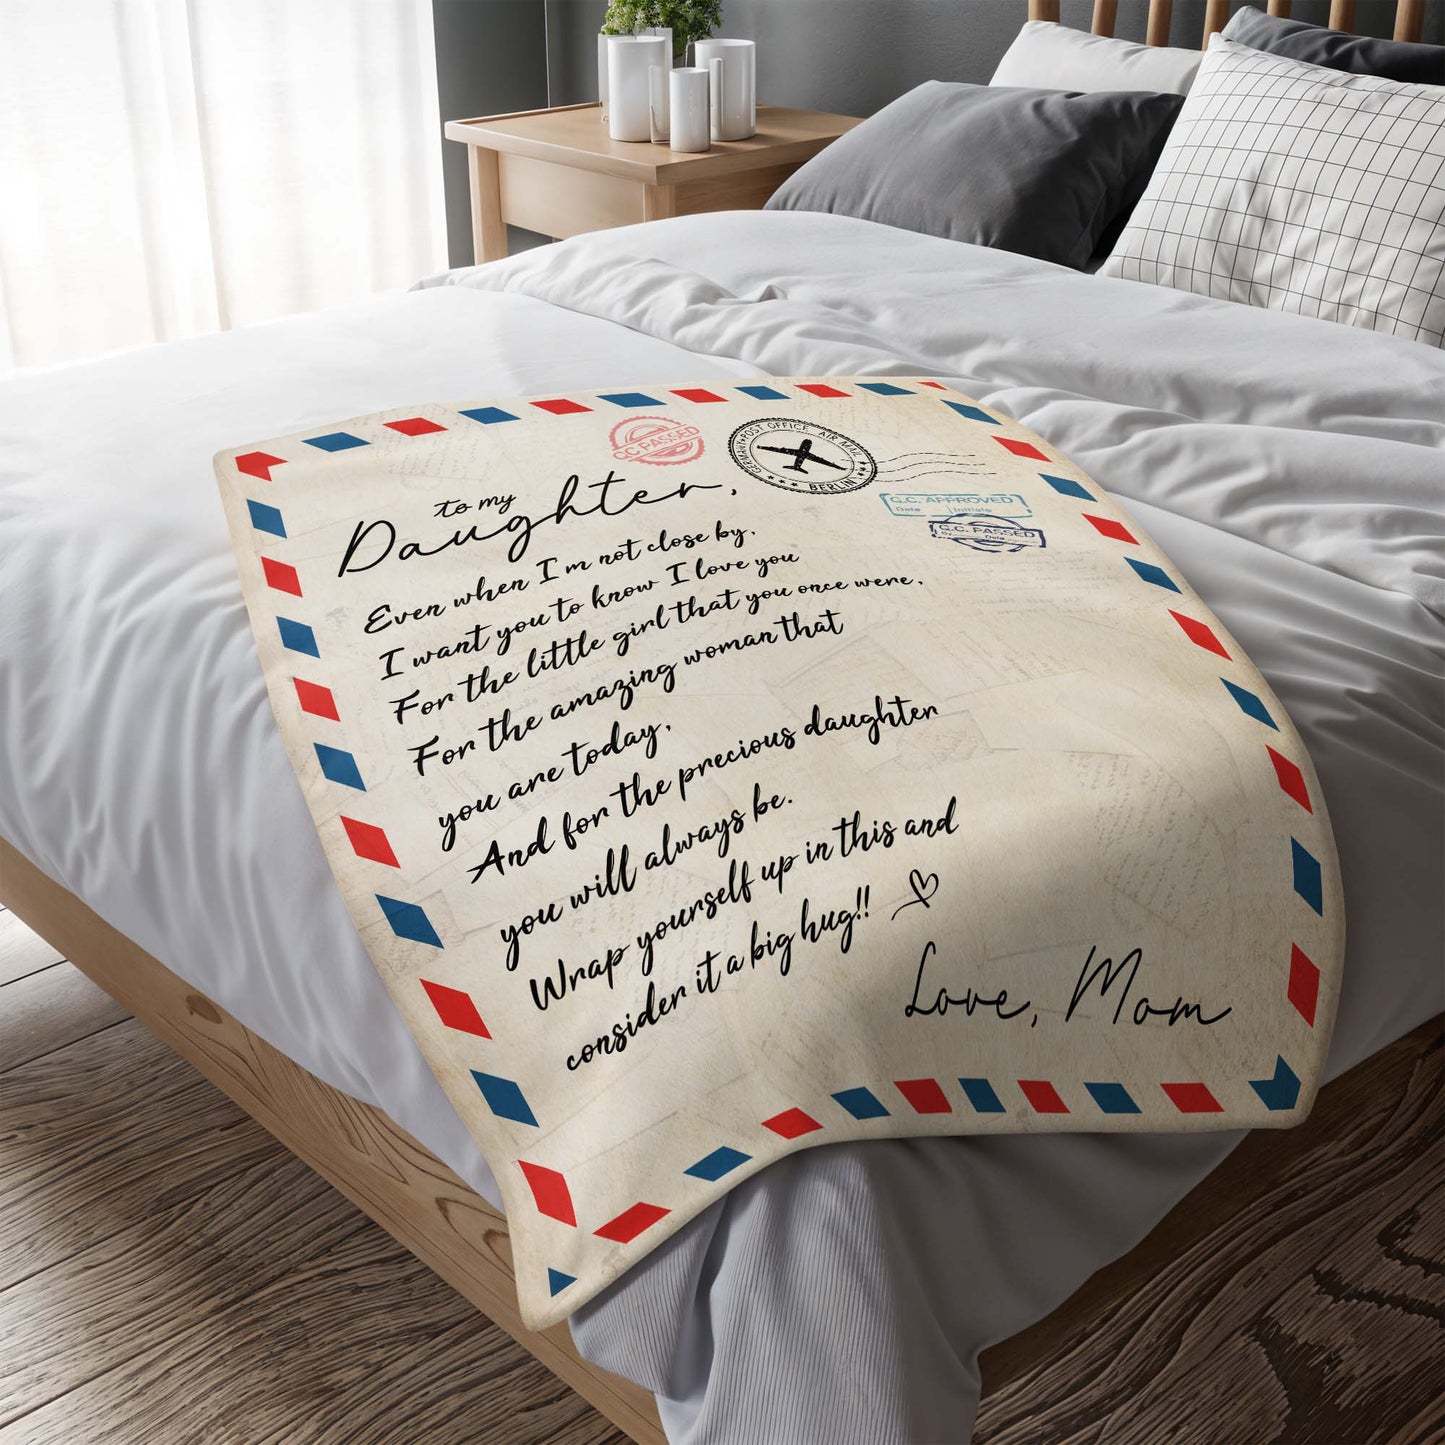 Q.C PASSED
POST OFFICE AIR MAIL
GERMANY
BERLIN
Q.C. APPROVED
Date Initiate
Q.C. PASSED
Date
to my
Daughter,
Even when I'm not close by,
I want you to know I love you
For the little girl that you once were,
For the amazing woman that
you are today,
And for the precious daughter
you will always be.
Wrap yourself up in this and
consider it a big hug!!
Love, Mom